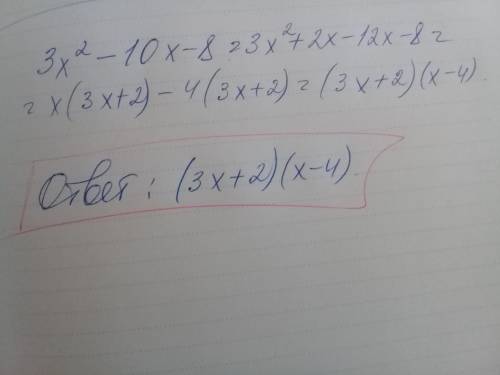 3x² - 10x - 8 = 3x² + 2x - 12x - 8 =
= x(3x+2) - 4(3x+2) = (3x+2)(x-4).
Ответ: (3x+2)(x-4).